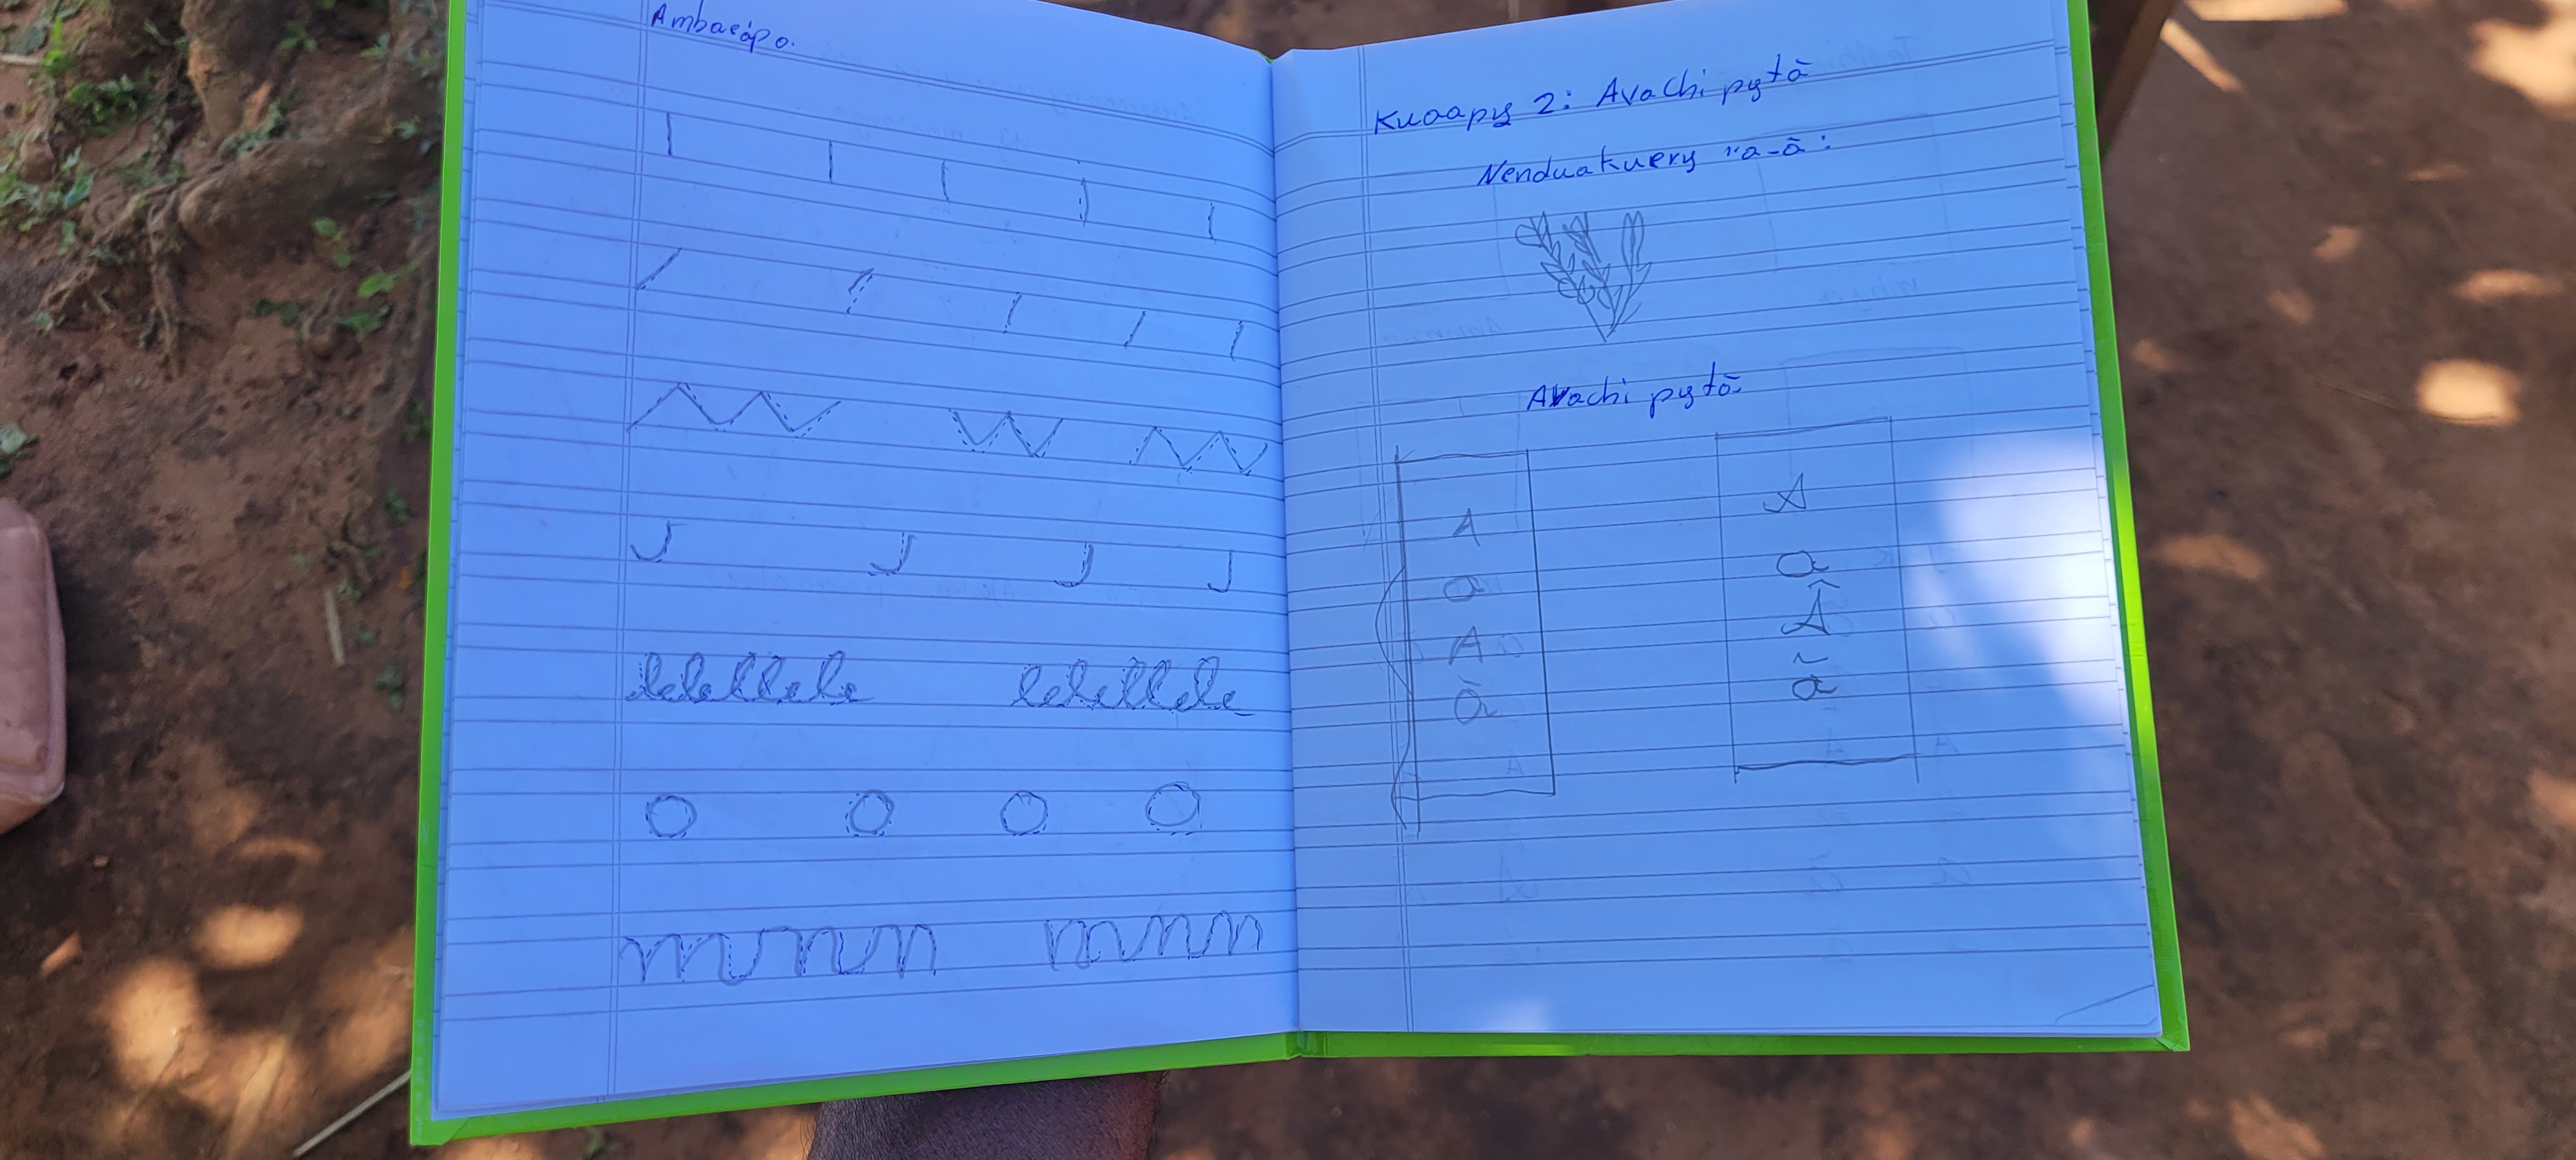 Ambaeápo.
lelellele lelellele
mnnn mnnn
Kuaapy 2: Avachi pytã
Nenduakuery "a-ã":
Avachi pytã
A A
a a
A Â
ã ã